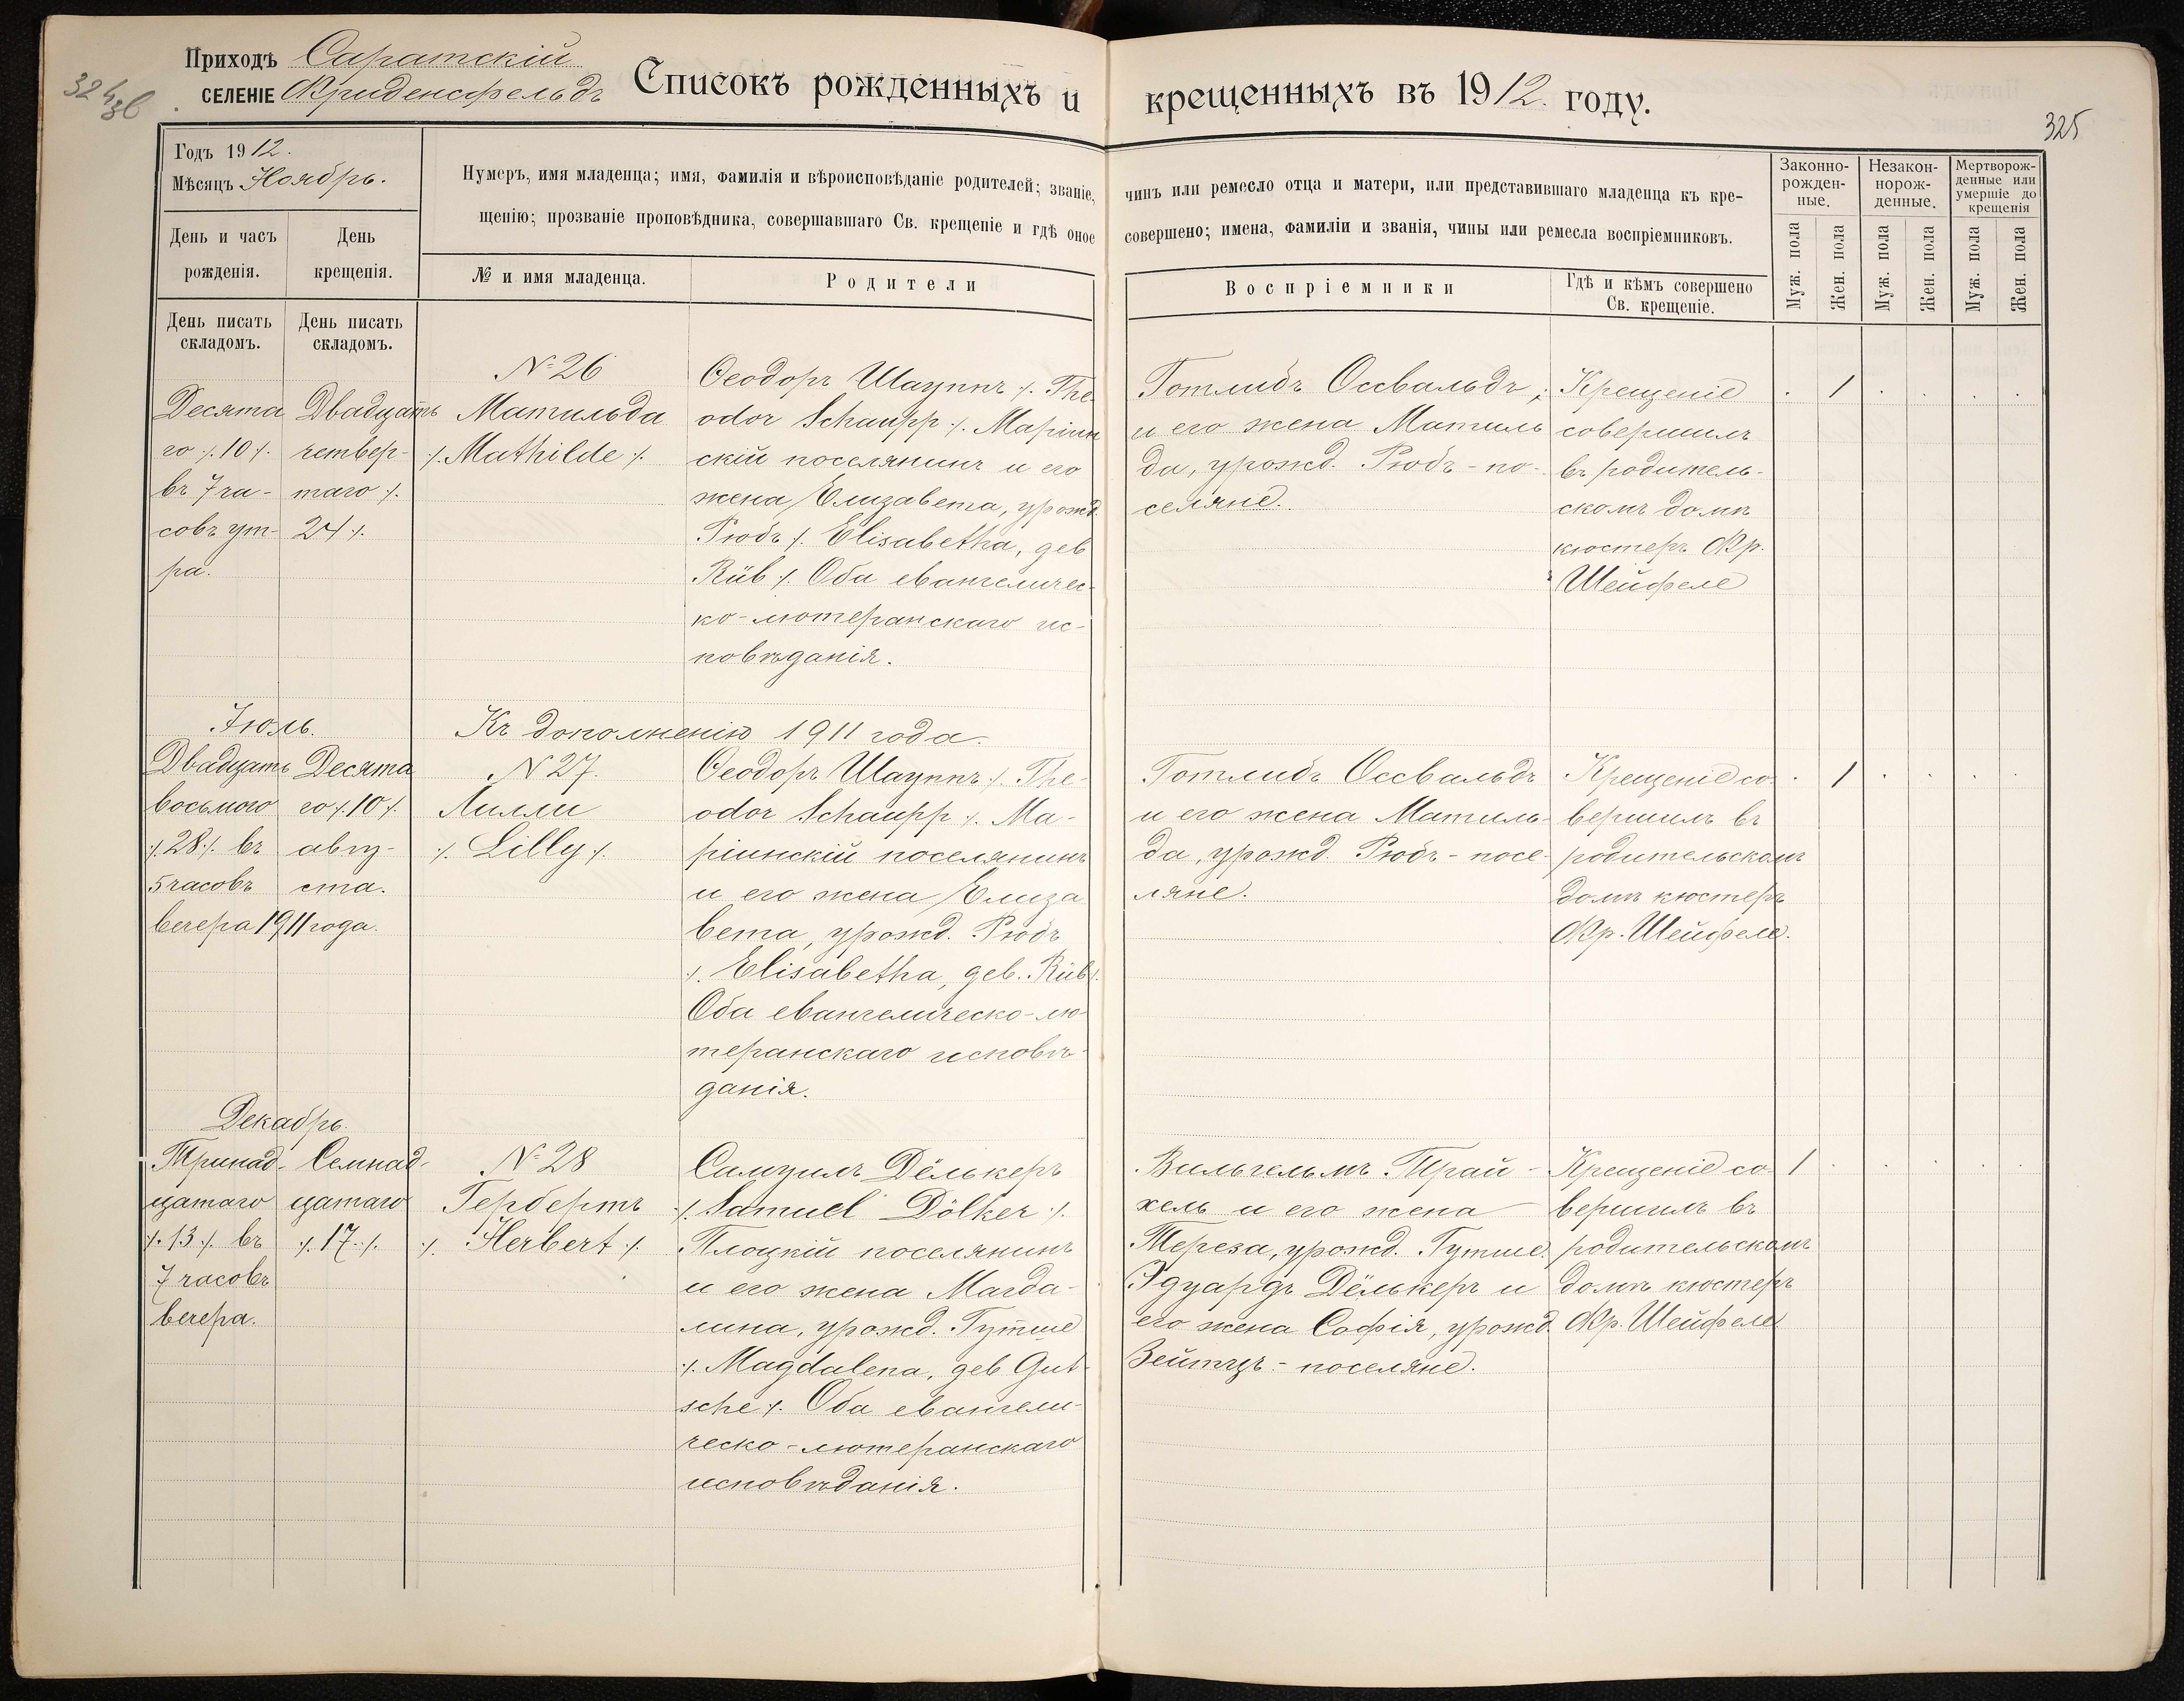 Приходъ Саратскій
324/36
СЕЛЕНІЕ Фриденсфельдъ
Списокъ рожденныхъ и крещенныхъ въ 1912. году.
325
Годъ 1912.
Мѣсяцъ Ноябрь.
День и часъ рожденія.
День крещенія.
День писать складомъ.
День писать складомъ.
Нумеръ, имя младенца; имя, фамилія и вѣроисповѣданіе родителей; званіе, чинъ или ремесло отца и матери, или представившаго младенца къ кре-
щенію; прозваніе проповѣдника, совершавшаго Св. крещеніе и гдѣ оное совершено; имена, фамиліи и званія, чины или ремесла воспріемниковъ.
№ и имя младенца.
Родители
Воспріемники
Гдѣ и кѣмъ совершено
Св. крещеніе.
Законно-
рожден-
ные.
Незакон-
норож-
денные.
Мертворож-
денные или
умершіе до
крещенія
Муж. пола
Жен. пола
Муж. пола
Жен. пола
Муж. пола
Жен. пола
Десята
го /.10/.
въ 7 ча-
совъ ут-
ра.
Двадцать
четвер-
таго /.
24/.
№ 26
Матильда
/. Mathilde /.
Ѳеодоръ Шауппъ /. The
odor Schaupp /. Маріин
скій поселянинъ и его
жена Елизавета, урожд.
Рюбъ /. Elisabetha, geb
Rüb /. Оба евангеличес-
ко-лютеранскаго ис-
повѣданія.
Готлибъ Оссвальдъ,
и его жена Матиль
да, урожд. Рюбъ - по-
селяне.
Крещеніе
совершилъ
въ родитель-
скомъ домѣ
кюстеръ Фр.
Шейфеле
1
Іюль.
Къ дополненію 1911 года.
Двадцать
восьмого
/.28/. въ
5 часовъ
вечера 1911 года.
Десята
го /.10/.
авгу-
ста.
№ 27.
Лилли
/. Lilly /.
Ѳеодоръ Шауппъ /. The-
odor Schaupp /. Ма-
ріинскій поселянинъ
и его жена Елиза
вета, урожд. Рюбъ
/. Elisabetha, geb. Rüb /.
Оба евангелическо-лю-
теранскаго исповѣ-
данія.
Готлибъ Оссвальдъ
и его жена Матиль-
да, урожд. Рюбъ - посе-
ляне.
Крещеніе со-
вершилъ въ
родительскомъ
домѣ кюстеръ
Фр. Шейфеле.
1
Декабрь.
Тринад-
цатаго
/.13/. въ
7 часовъ
вечера.
Семнад-
цатаго
/.17./.
№ 28
Гербертъ
/. Herbert /.
Самуилъ Дёлькеръ
/. Samuel Dölker /.
Плоцкій поселянинъ
и его жена Магда-
лина, урожд. Гутше
/. Magdalena, geb Gut-
sche /. Оба евангели-
ческо-лютеранскаго
исповѣданія.
Вильгельмъ Трай-
хель и его жена
Тереза, урожд. Гутше.
Эдуардъ Дёлькеръ и
его жена Софія, урожд.
Зейтцъ. - поселяне.
Крещеніе со-
вершилъ въ
родительскомъ
домѣ кюстеръ
Фр. Шейфеле
1